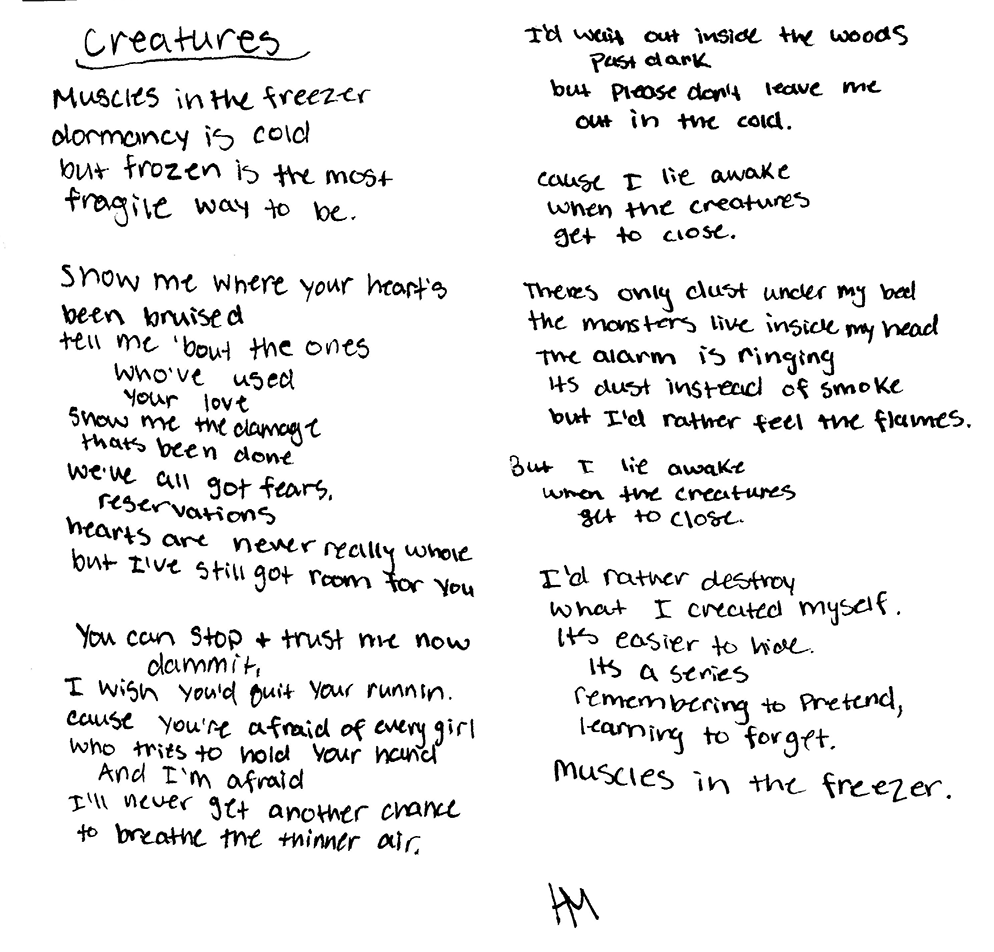 Creatures
Muscles in the freezer
dormancy is cold
but frozen is the most
fragile way to be.
Show me where your heart's
been bruised
tell me 'bout the ones
who've used
your love
Show me the damage
thats been done
we've all got fears,
reservations
hearts are never really whole
but I've still got room for you
You can stop + trust me now
dammit,
I wish you'd quit your runnin.
cause you're afraid of every girl
who tries to hold your hand
And I'm afraid
I'll never get another chance
to breathe the thinner air.
I'd wait out inside the woods
past dark
but please don't leave me
out in the cold.
cause I lie awake
when the creatures
get to close.
Theres only dust under my bed
the monsters live inside my head
The alarm is ringing
its dust instead of smoke
but I'd rather feel the flames.
But I lie awake
when the creatures
get to close.
I'd rather destroy
what I created myself.
Its easier to hide.
Its a series
remembering to pretend,
learning to forget.
Muscles in the freezer.
HM